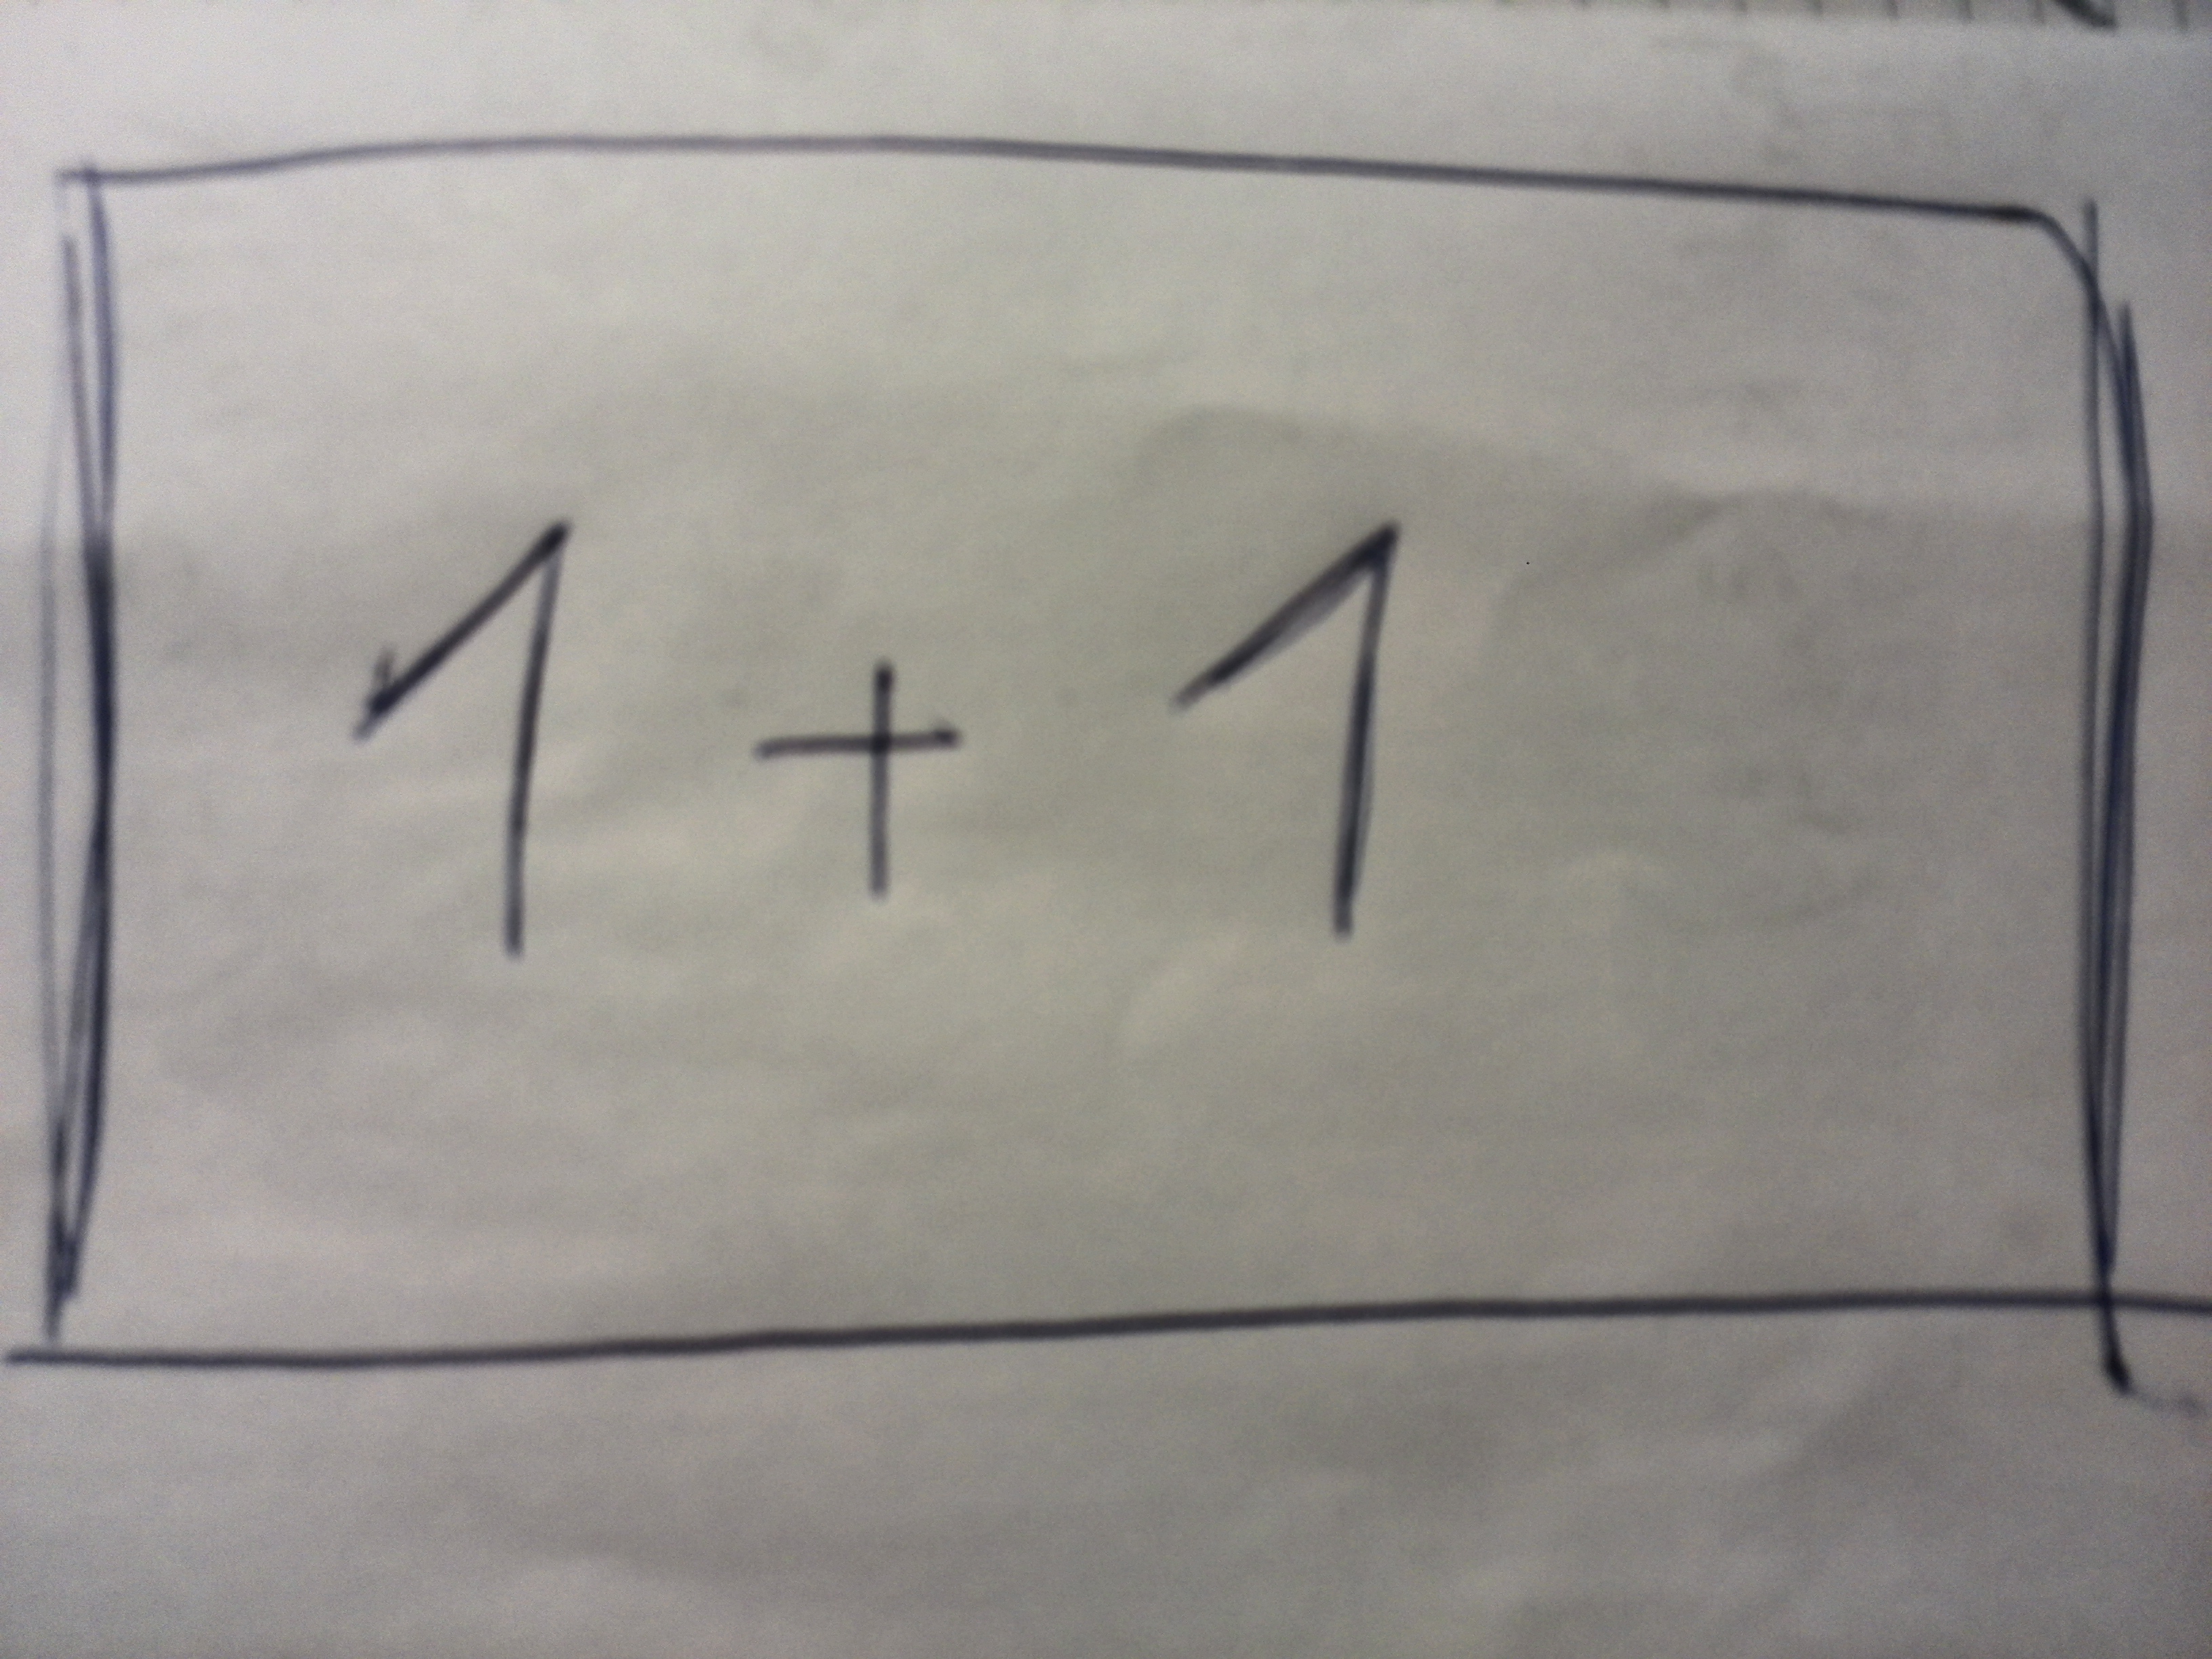 1 + 1